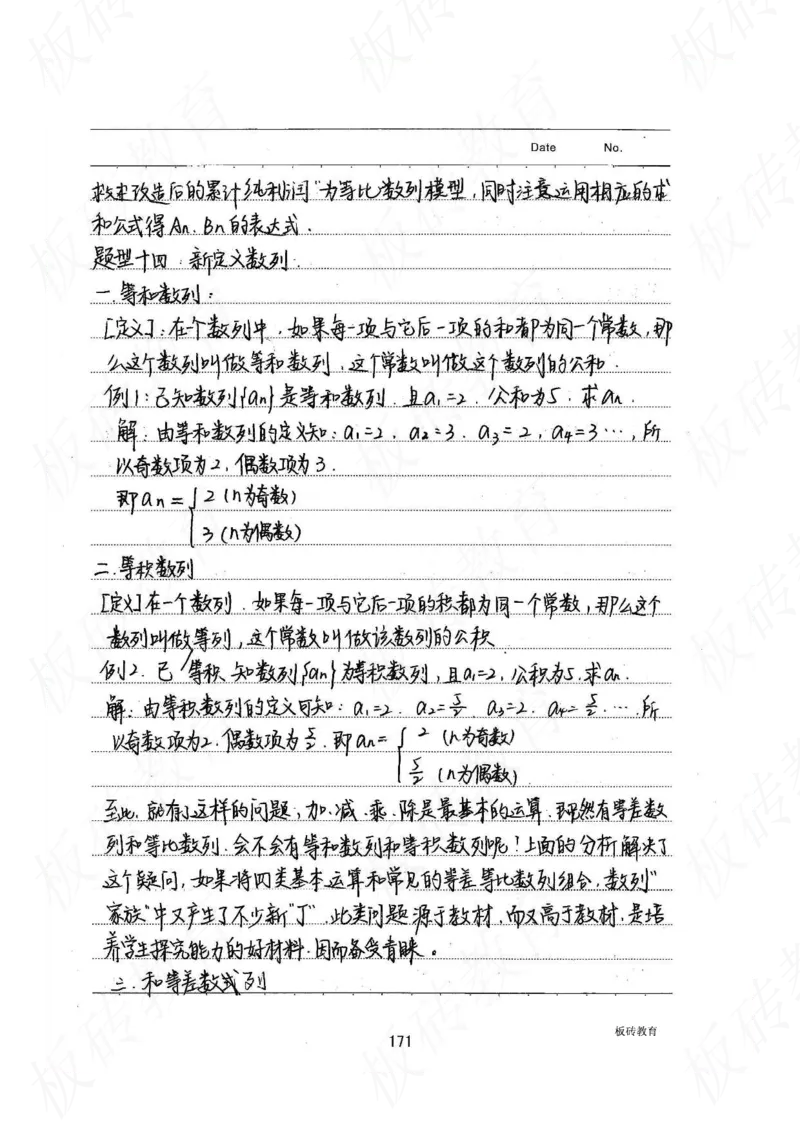 Date No.
改造后的累计纯利润"为等比数列模型,同时注意运用相应的求
和公式得An、Bn的表达式.
题型十四:新定义数列.
一.等和数列:
[定义]:在个数列中,如果每一项与它后一项的和都为同一个常数,那
么这个数列叫做等和数列,这个常数叫做这个数列的公和.
例1:已知数列{an}是等和数列,且a₁=2,公和为5.求an.
解:由等和数列的定义知:a₁=2,a₂=3,a₃=2,a₄=3…,所
以奇数项为2,偶数项为3.
即an={2(n为奇数)
3(n为偶数)
二.等积数列
[定义]在一个数列,如果每一项与它后一项的积都为同一个常数,那么这个
数列叫做等列,这个常数叫做该数列的公积
例2.已 等积 知数列{an}为等积数列,且a₁=2,公积为5.求an.
解:由等积数列的定义可知:a₁=2.a₂=5/2.a₃=2.a₄=5/2.….所
以奇数项为2.偶数项为5/2.即an={2 (n为奇数)
5/2 (n为偶数)
至此,就有了这样的问题,加、减、乘、除是最基本的运算.既然有等差数
列和等比数列.会不会有等和数列和等积数列呢!上面的分析解决了
这个疑问,如果将四类基本运算和常见的等差等比数列组合,数列"
家族"中又产生了不少新"丁".此类问题源于教材,而又高于教材,是培
养学生探究能力的好材料.因而备受青睐。
三.和等差数式列
171
板砖教育